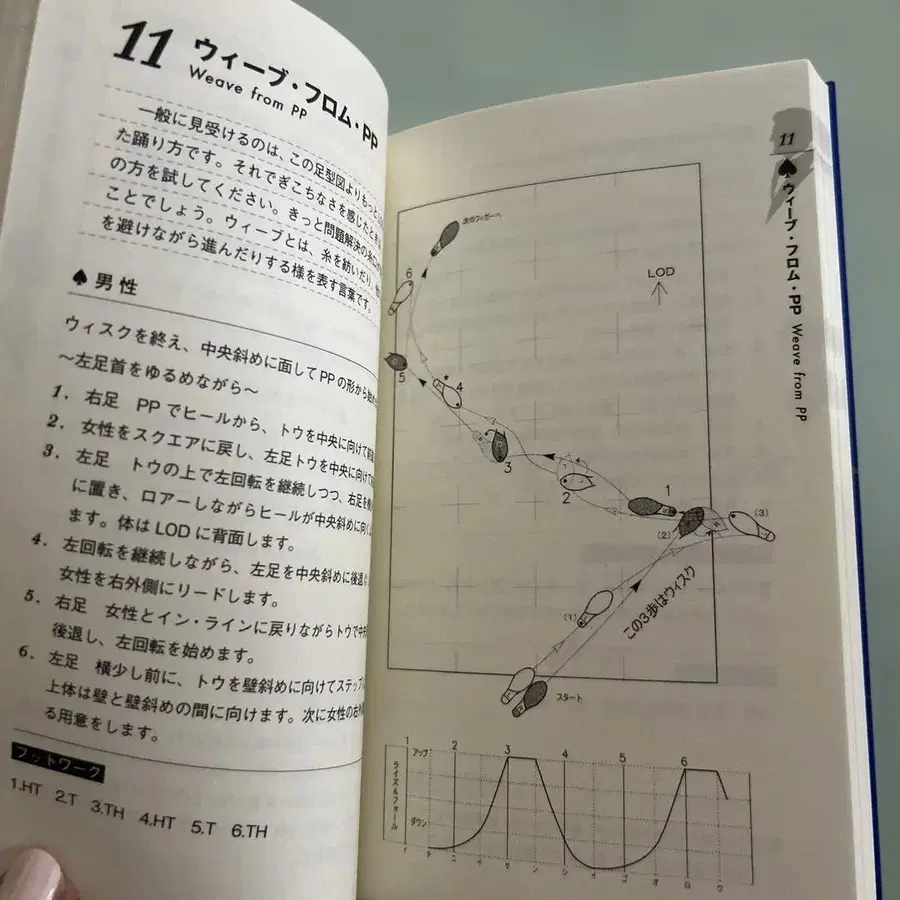 11 ウィーブ・フロム・PP
Weave from PP
一般に見受けるのは、この足型図よりもっと
た踊り方です。それでぎこちなさを感じたときは
の方を試してください。きっと問題解決の糸
ことでしょう。ウィーブとは、糸を紡いだり、
を避けながら進んだりする様を表す言葉です。
♠男性
ウィスクを終え、中央斜めに面してPPの形から始
〜左足首をゆるめながら〜
1. 右足 PPでヒールから、トウを中央に向けて前進
2. 女性をスクエアに戻し、左足トウを中央に向けて
3. 左足 トウの上で左回転を継続しつつ、右足を
に置き、ロアーしながらヒールが中央斜めに向く
ます。体はLODに背面します。
4. 左回転を継続しながら、左足を中央斜めに後退し
女性を右外側にリードします。
5. 右足 女性とイン・ラインに戻りながらトウで中央
後退し、左回転を始めます。
6. 左足 横少し前に、トウを壁斜めに向けてステップ
上体は壁と壁斜めの間に向けます。次に女性の右外
る用意をします。
フットワーク
1.HT 2.T 3.TH 4.HT 5.T 6.TH
11
♠ウィーブ・フロム・PP Weave from PP
次のフィガーへ
LOD
6
5
4
3
2
1
(2)
(3)
(1)
この3歩はウィスク
スタート
1 2 3 4 5 6
アップ
ライズ&フォール
ダウン
イ チ ニ イ サ ン シ イ ゴ オ ロ ウ